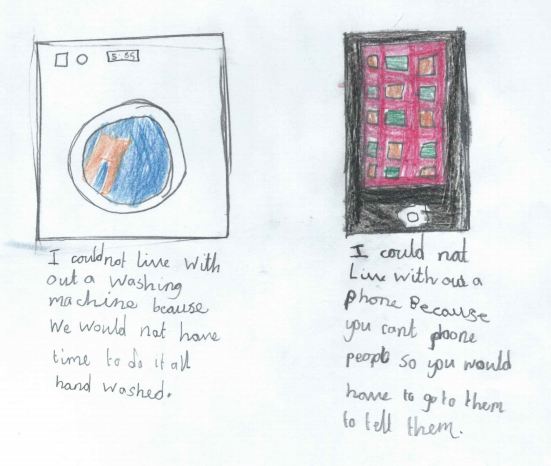 5:55
I could not live with
out a washing
machine beause
We would not have
time to do it all
hand washed.
I could not
Live without a
phone Because
you cant phone
people so you would
have to go to them
to tell them.